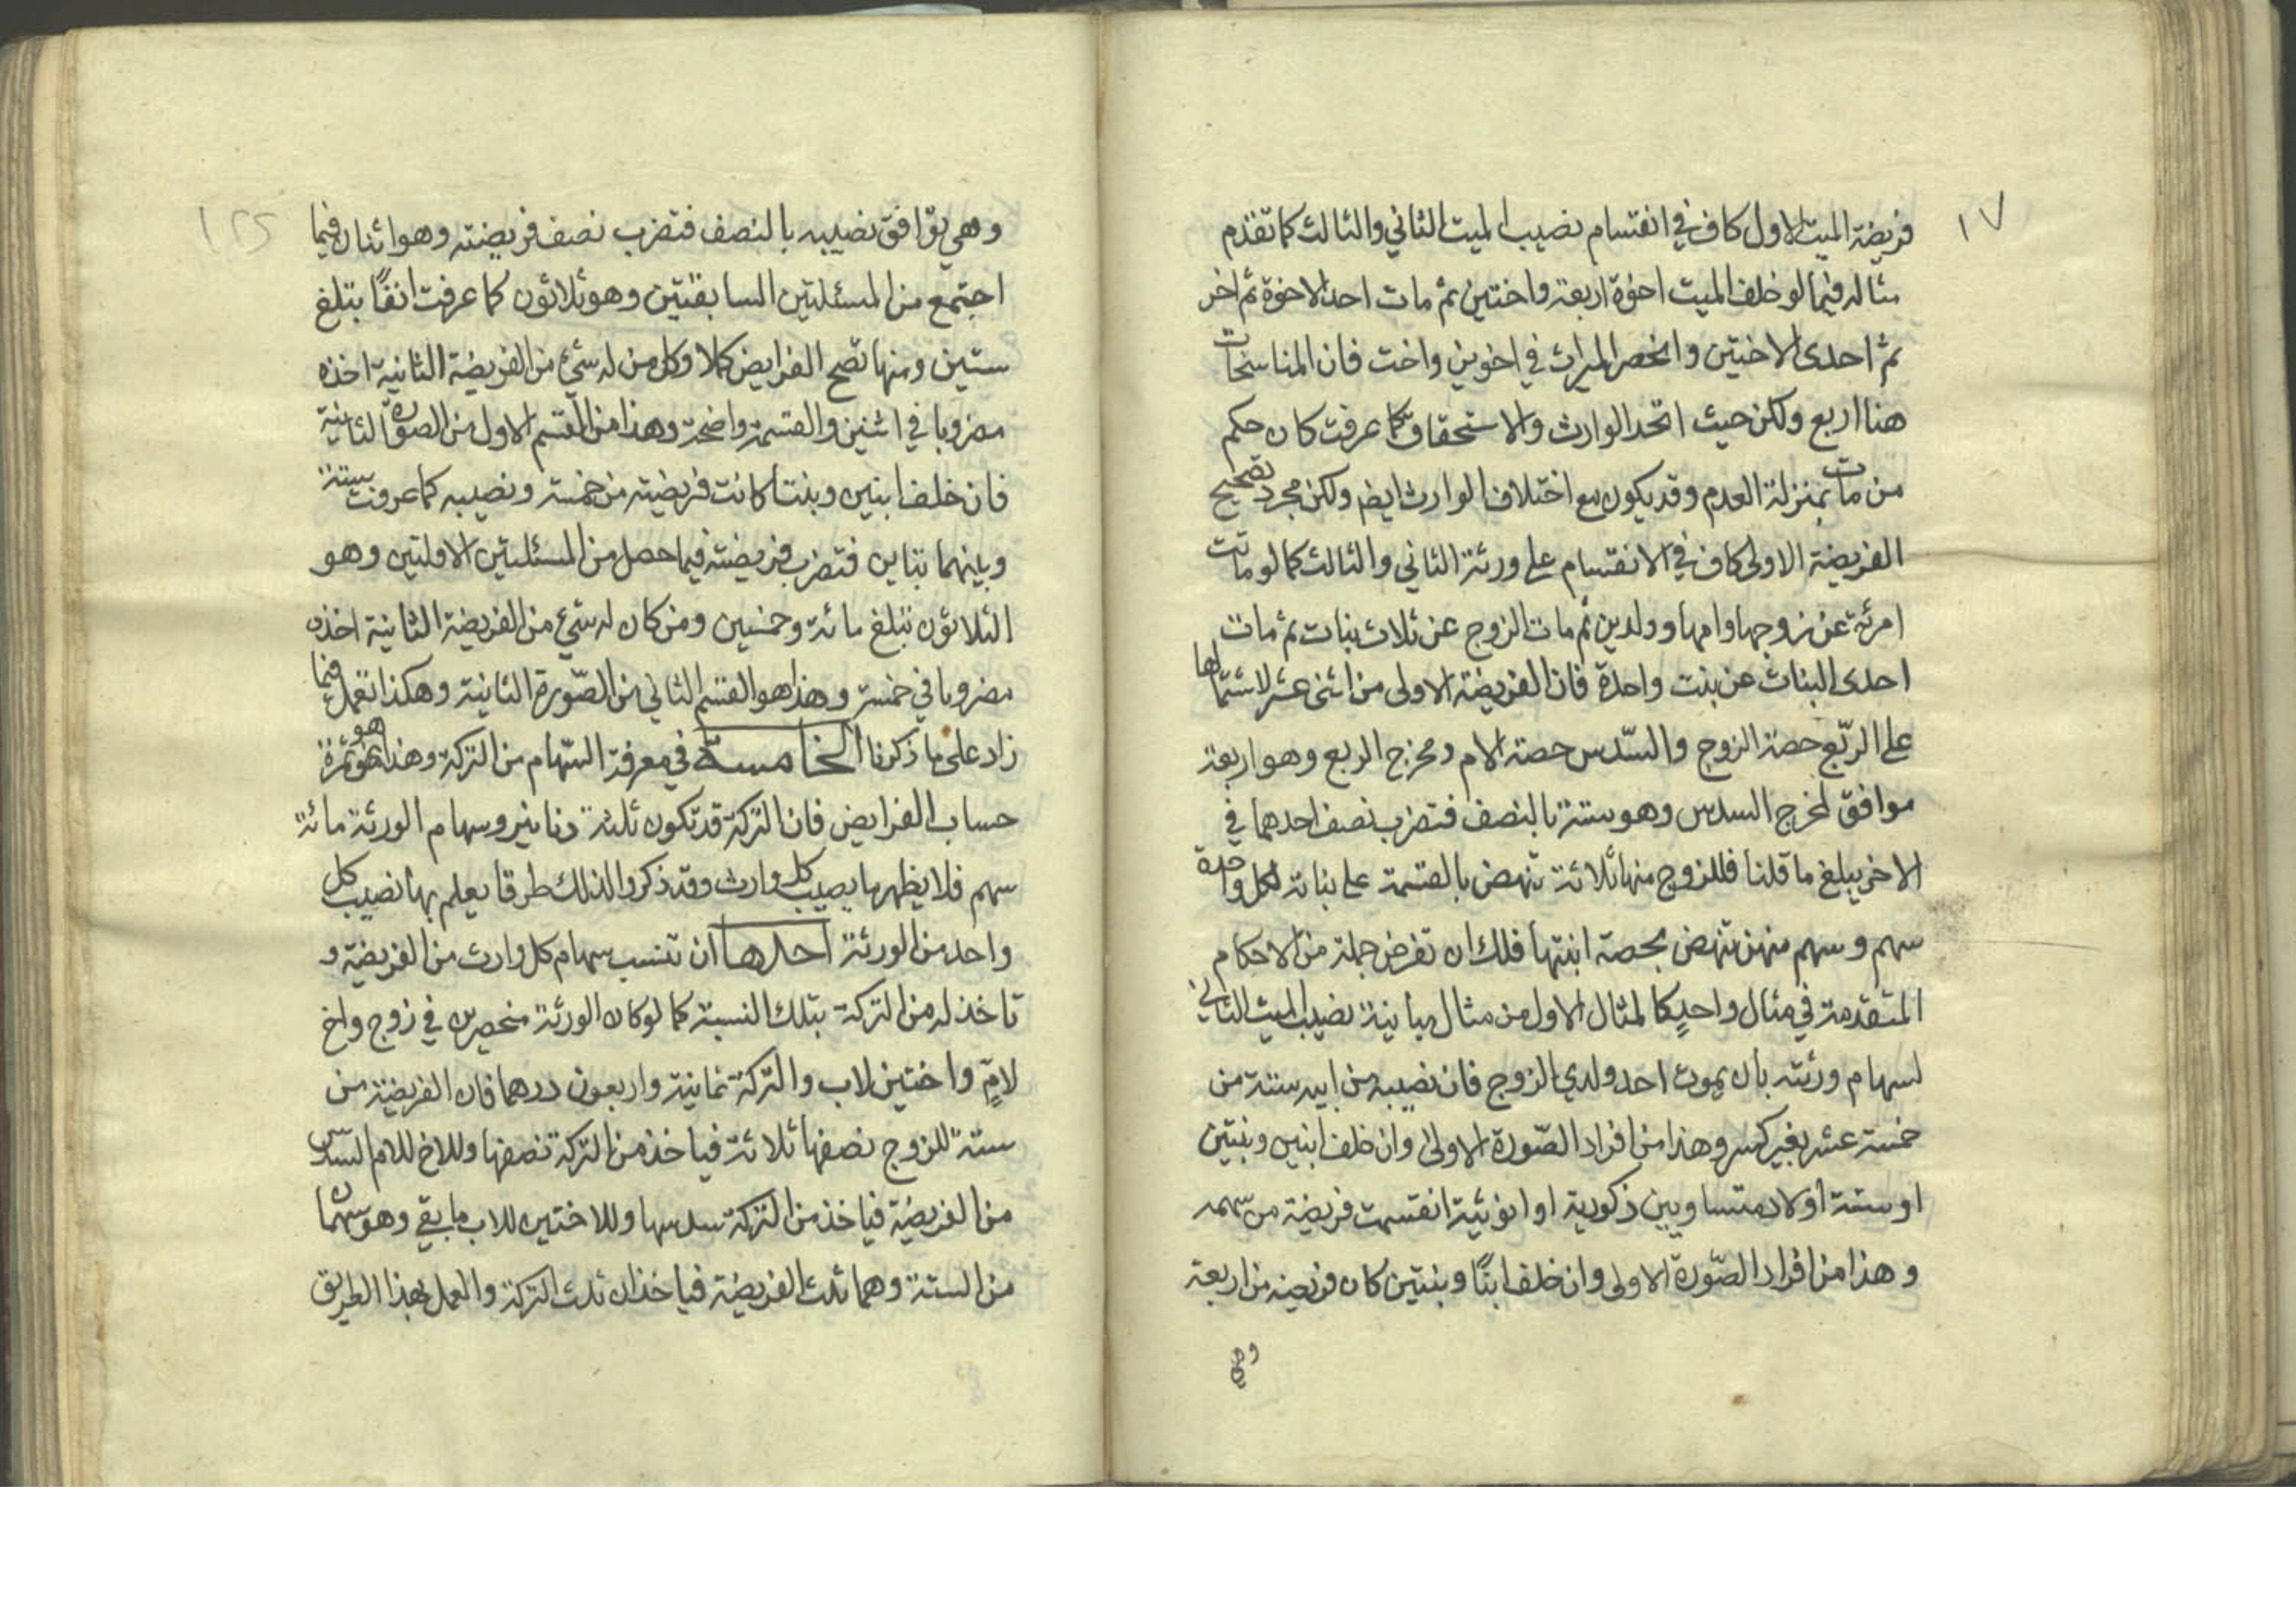 ١٧
فريضة الميت الاول كاف في انقسام نصيب الميت الثاني والثالث كما تقدم
مثاله فيما لو خلف الميت اخوة اربعة واختين ثم مات احد الاخوة ثم اخر
ثم احدى الاختين وانحصر الميراث في اخوين واخت فان المناسخات
هنا اربع ولكن حيث اتحد الوارث والاستحقاق كما عرفت كان حكم
من مات بمنزلة العدم وقد يكون مع اختلاف الوارث ايضا ولكن مجرد تصحيح
الفريضة الاولى كاف في الانقسام على ورثة الثاني والثالث كما لو ماتت
امرئة عن زوجها وامها وولدين ثم مات الزوج عن ثلاث بنات ثم مات
احدى البنات عن بنت واحدة فان الفريضة الاولى من اثنى عشر لاشتمالها
على الربّع حصة الزوج والسّدس حصة الام ومخرج الربع وهو اربعة
موافق لمخرج السدس وهو ستة بالنصف فتضرب نصف احدهما في
الاخر يبلغ ما قلنا فللزوج منها ثلاثة تنهض بالقسمة على بناته لكل واحدة
سهم وسهم منهن تنهض بحصة ابنتها فلك ان تفرض جملة من الاحكام
المتقدمة في مثال واحدٍ كالمثال الاول من مثال مباينة نصيب الميت الثاني
لسهام ورثته بان يموت احد ولدي الزوج فان نصيبه من ابيه ستة من
خمسة عشر بغير كسر وهذا من افراد الصّورة الاولى وان خلف ابنين وبنتين
او ستة اولاد متساويين ذكورية او انوثية انقسمت فريضة من سهمه
وهذا من افراد الصّورة الاولى وان خلف ابنًا وبنتين كان فريضته من اربعة
وهي
١٢٥
وهي توافق نصيبه بالنصف فتضرب نصف فريضته وهو اثنان فيما
اجتمع من المسئلتين السابقتين وهو ثلاثون كما عرفت انفًا بتلغ
ستين ومنها تصح الفرايض كملا وكل من له شيء من الفريضة الثانية اخذه
مضروبا في اثنين والقسمة واضحة وهذا من القسم الاول من الصورة الثانية
فان خلف ابنين وبنتا كانت فريضته من خمسة ونصيبه كما عرفت ستة
وبينهما تباين فتضرب فريضته فيما حصل من المسئلتين الاولتين وهو
الثلاثون تبلغ مائة وخمسين ومن كان له شيء من الفريضة الثانية اخذه
مضروبا في خمسة وهذا هو القسم الثاني من الصّورة الثانية وهكذا تعمل فيما
زاد على ما ذكرنا الخامسة في معرفة السّهام من التركة وهذا هو ثمرة
حساب الفرايض فان التركة قد تكون ثلثة دنانير وسهام الورثة مائة
سهم فلا يظهر ما يصيب كل وارث وقد ذكروا لذلك طرقا يعلم بها نصيب كل
واحد من الورثة احدها ان تنسب سهام كل وارث من الفريضة و
تاخذ له من التركة بتلك النسبة كما لو كان الورثة منحصرين في زوج واخ
لامٍّ واختين لاب والتركة ثمانية واربعون درهما فان الفريضة من
ستة للزوج نصفها ثلاثة فياخذ من التركة نصفها وللاخ للام السّدس
من الفريضة فياخذ من التركة سدسها وللاختين للاب ما بقي وهو سهمان
من الستة وهما ثلث الفريضة فياخذان ثلث التركة والعمل بهذا الطريق